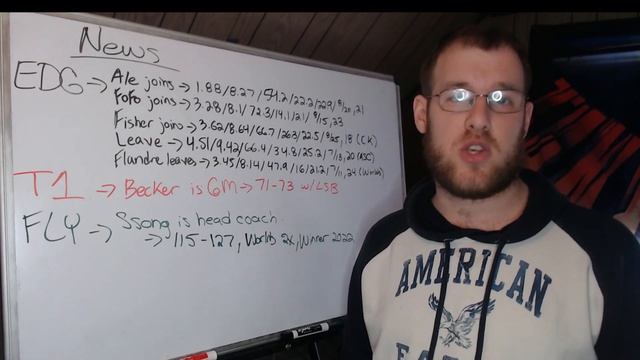 News
EDG → Ale joins → 1.88/8.27/54.2/22.2/229/8/20, 21
FoFo joins → 3.28/8.1/72.3/14.1/21/8/15, 23
Fisher joins → 3.62/8.64/66.7/263/22.5/8/25, 18 (CK)
Leave → 4.51/9.42/66.4/34.8/25.2/7/13, 20 (ASC)
Flandre leaves → 3.45/8.14/47.9/16/21.2/7/11, 24 (Worlds)
T1 → Becker is GM → 71-73 w/LSB
FLY → Ssong is head coach
→ 115-127, Worlds 2x, Winner 2022
AMERICAN